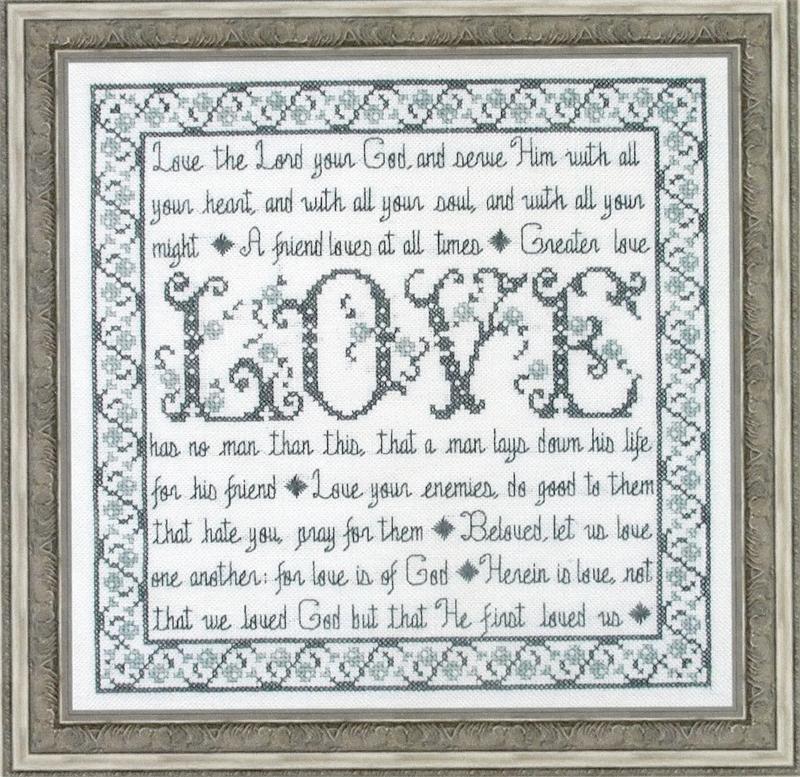 Love the Lord your God, and serve Him with all
your heart, and with all your soul, and with all your
might ◆ A friend loves at all times ◆ Greater love
LOVE
has no man than this, that a man lays down his life
for his friend ◆ Love your enemies, do good to them
that hate you, pray for them ◆ Beloved, let us love
one another: for love is of God ◆ Herein is love, not
that we loved God but that He first loved us ◆